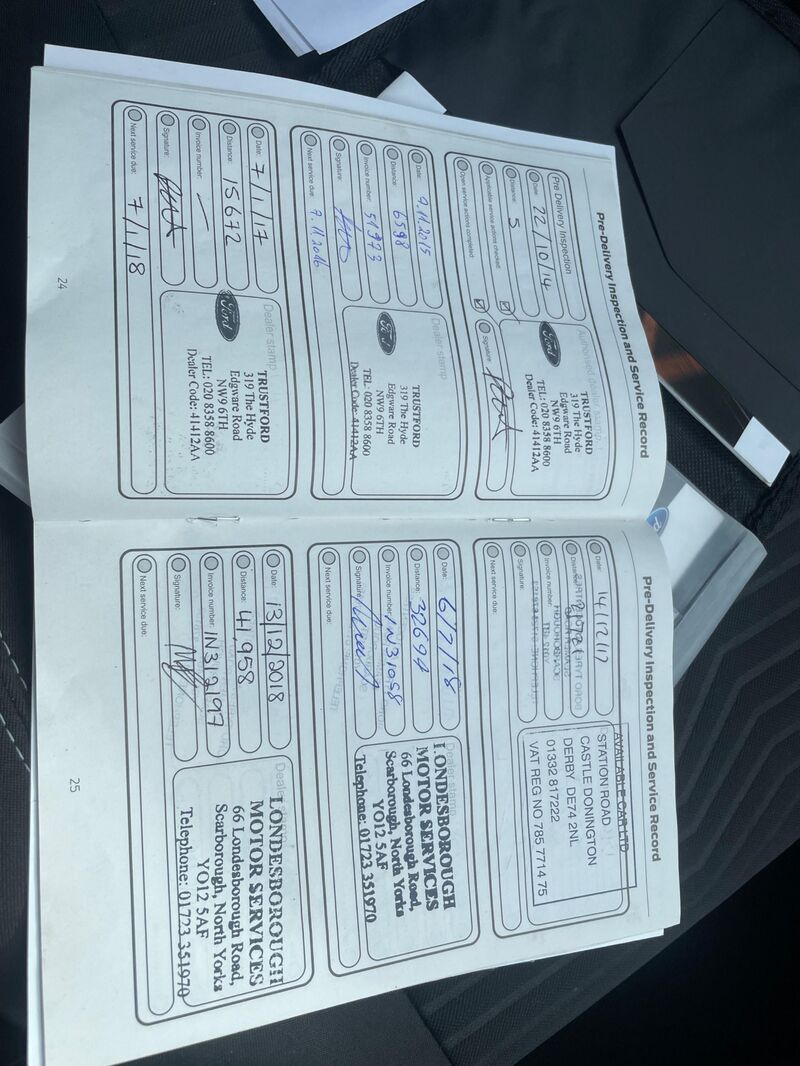 Pre-Delivery Inspection and Service Record
Pre Delivery Inspection
Date: 22/10/14
Distance: 5
Applicable service actions checked:
Open service actions completed:
Signature:
Authorised dealer stamp
Ford
TRUSTFORD
319 The Hyde
Edgware Road
NW9 6TH
TEL: 020 8358 8600
Dealer Code: 41412AA
Date: 9.11.2015
Distance: 6598
Invoice number: 51973
Signature:
Next service due: 9.11.2016
Dealer stamp
Ford
TRUSTFORD
319 The Hyde
Edgware Road
NW9 6TH
TEL: 020 8358 8600
Dealer Code: 41412AA
Date: 7/1/17
Distance: 15672
Invoice number: —
Signature:
Next service due: 7/1/18
Dealer stamp
Ford
TRUSTFORD
319 The Hyde
Edgware Road
NW9 6TH
TEL: 020 8358 8600
Dealer Code: 41412AA
24
Pre-Delivery Inspection and Service Record
Date: 14/12/17
Distance:
Invoice number:
Signature:
Next service due:
AVAILABLE CAR LTD
STATION ROAD
CASTLE DONINGTON
DERBY DE74 2NL
01332 817222
VAT REG NO 785 7714 75
Date: 6/7/18
Distance: 32694
Invoice number: IN31058
Signature:
Next service due:
Dealer stamp
LONDESBOROUGH
MOTOR SERVICES
66 Londesborough Road,
Scarborough, North Yorks
YO12 5AF
Telephone: 01723 351970
Date: 13/12/2018
Distance: 41,958
Invoice number: IN312197
Signature:
Next service due:
Dealer
LONDESBOROUGH
MOTOR SERVICES
66 Londesborough Road,
Scarborough, North Yorks
YO12 5AF
Telephone: 01723 351970
25